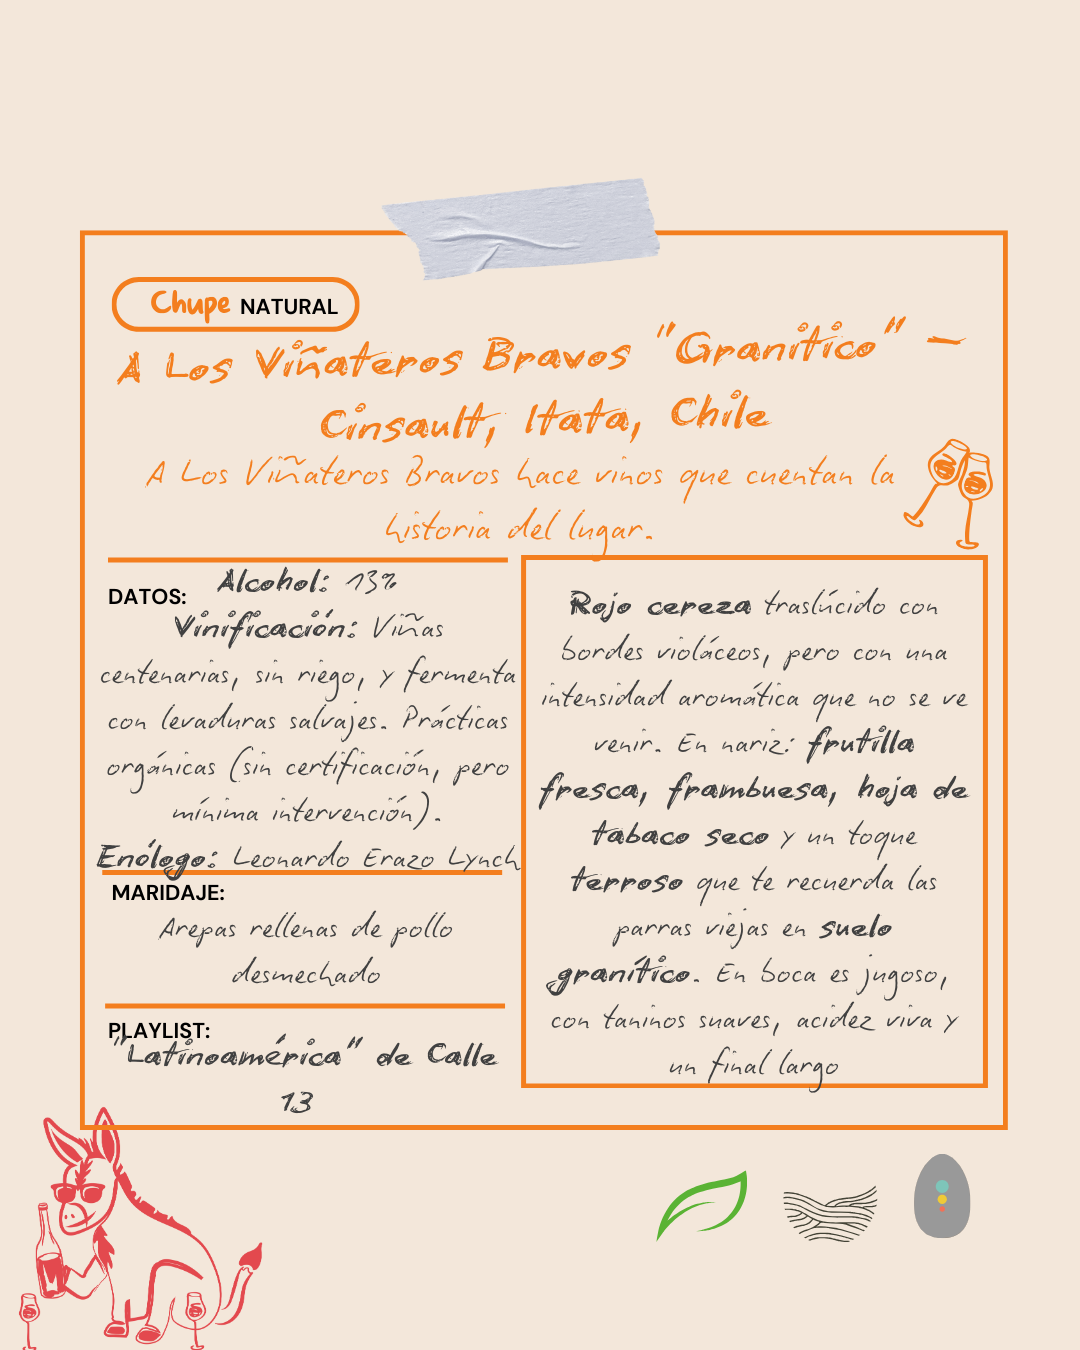 Chupe NATURAL
A Los Viñateros Bravos "Granítico" –
Cinsault, Itata, Chile
A Los Viñateros Bravos hace vinos que cuentan la
historia del lugar.
DATOS:
Alcohol: 13%
Vinificación: Viñas
centenarias, sin riego, y fermenta
con levaduras salvajes. Prácticas
orgánicas (sin certificación, pero
mínima intervención).
Enólogo: Leonardo Erazo Lynch
MARIDAJE:
Arepas rellenas de pollo
desmechado
PLAYLIST:
"Latinoamérica" de Calle
13
Rojo cereza traslúcido con
bordes violáceos, pero con una
intensidad aromática que no se ve
venir. En nariz: frutilla
fresca, frambuesa, hoja de
tabaco seco y un toque
terroso que te recuerda las
parras viejas en suelo
granítico. En boca es jugoso,
con taninos suaves, acidez viva y
un final largo